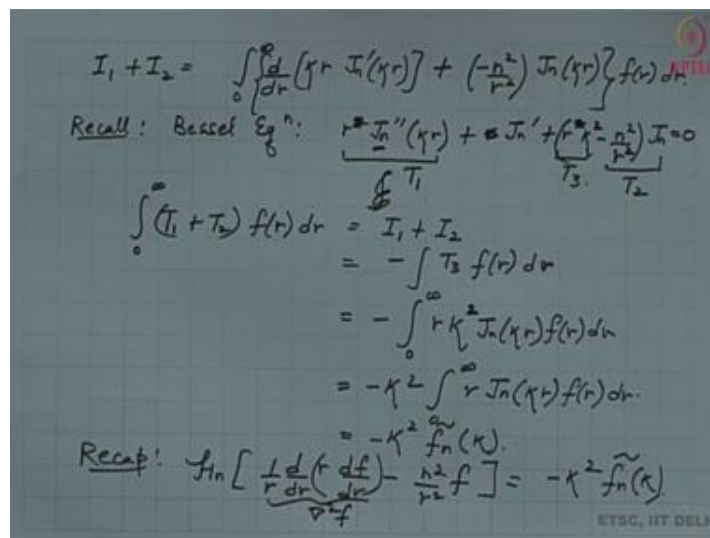 I₁ + I₂ = ∫₀^∞ { d/dr [κr Jn'(κr)] + (-n²/r²) Jn(κr) } f(r) dr.
NPTEL
Recall : Bessel Eqⁿ: r Jn''(κr) + Jn' + (rκ² - n²/r²) Jn = 0
T₁ T₃. T₂
∫₀^∞ (T₁ + T₂) f(r) dr = I₁ + I₂
= - ∫ T₃ f(r) dr
= - ∫₀^∞ r κ² Jn(κr) f(r) dr
= -κ² ∫₀^∞ r Jn(κr) f(r) dr.
= -κ² f̃n(κ).
Recap: ℋn [ 1/r d/dr (r df/dr) - n²/r² f ] = -κ² f̃n(κ)
∇²f
ETSC, IIT DEL